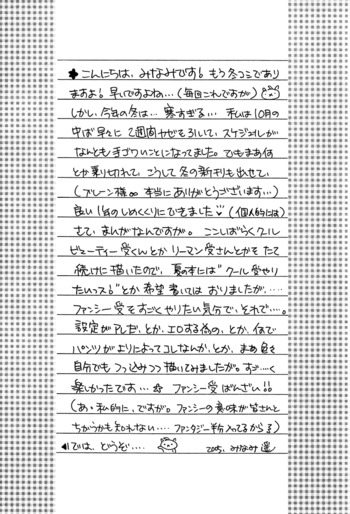 こんにちは、みなみです! もう冬コミであり
ますよ! 早いですよね…(毎回これですが)
しかし、今年の冬は… 寒すぎる… 私は10月の
中ば早々に 2週間カゼをひいて、スケジュールが
なんとも手ゴワいことになってました。でもまあ何
とか乗り切れて、こうして冬の新刊も出せて、
(ブレーン様∞ 本当にありがとうございます…)
良い1年のしめくくりにできました (個人的には)
さて、まんがなんですが。 ここしばらくクール
ビューティー受くんとか リーマン受さんとかを たて
続けに描いたので、夏の本には"クール受やり
たいっス!"とか希望書いてはおりましたが、…
ファンシー受をすごくやりたい気分で、それで…。
設定がアレだ、とか、エロする為の、とか、何で
パンツがよりによってコレなんか、とか、まあ自々
自分でもつっ込みつつ描いてみましたが。すごーく
楽しかったです… ファンシー受 ばんざい!!
(あ・私的に、ですが。ファンシーの意味が皆さんと
ちがうかも知れない…。ファンタジー半分入ってるから)
では、どうぞ…。 2005. みなみ遥